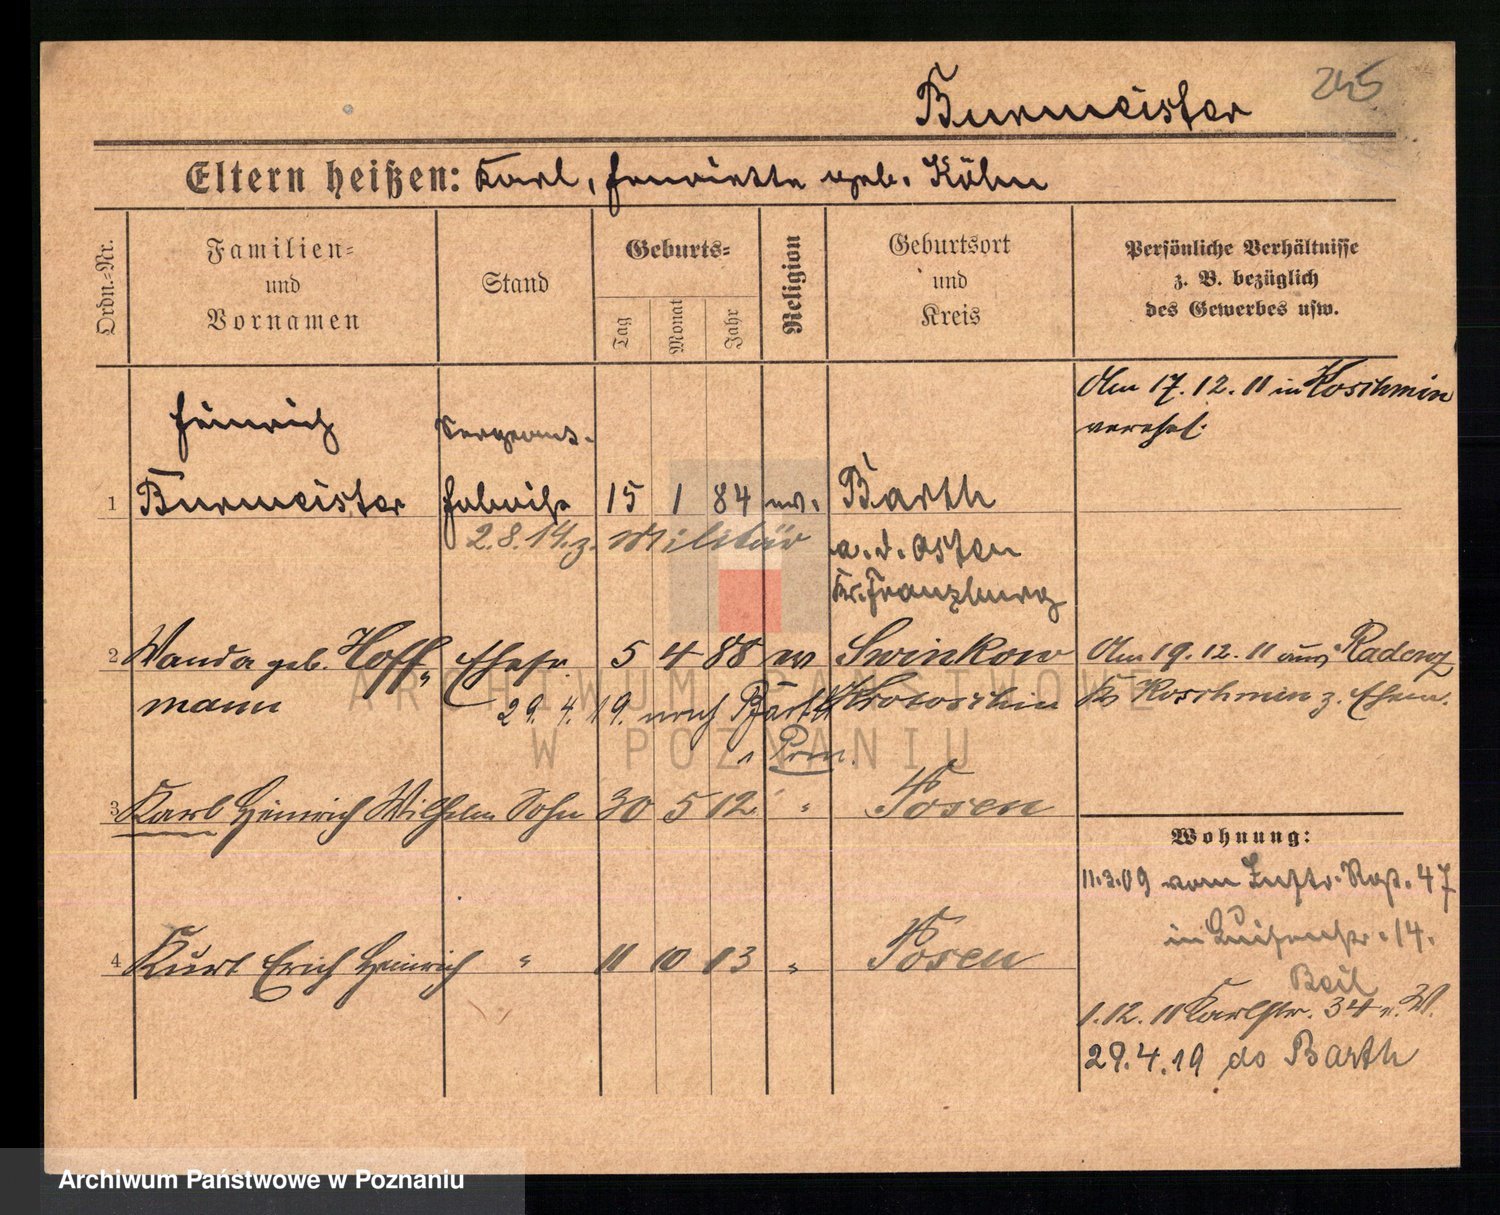 245
Burmeister
Eltern heißen: Karl, Henriette geb. Köhn
Ordn.-Nr.
Familien-
und
Vornamen
Stand
Geburts-
Tag
Monat
Jahr
Religion
Geburtsort
und
Kreis
Persönliche Verhältnisse
z. B. bezüglich
des Gewerbes usw.
Am 17.12.11 in Koschmin
verehel.
Heinrich
Sergeant-
1 Burmeister 15 1 84 ev. Barth
2.8.14. z. Militär
a. d. Ostsee
Kr. Franzburg
2 Wanda geb. Hoff- Ehefr. 5 4 88 ev Swinkow Am 19.12.11 aus Radenz
mann Krotoschin Kr Koschmin z. Ehem.
29.4.19. nach Barth
i Pom.
3 Karl Heinrich Wilhelm Sohn 30 5 12 " Posen
Wohnung:
11.3.09 vom 47
in Luisenstr. 14.
4 Kurt Erich Heinrich " 11 10 13 " Posen
Beil
1.12.11 Karlstr. 34 b. W.
29.4.19 do Barth
ARCHIWUM PAŃSTWOWE
W POZNANIU
Archiwum Państwowe w Poznaniu